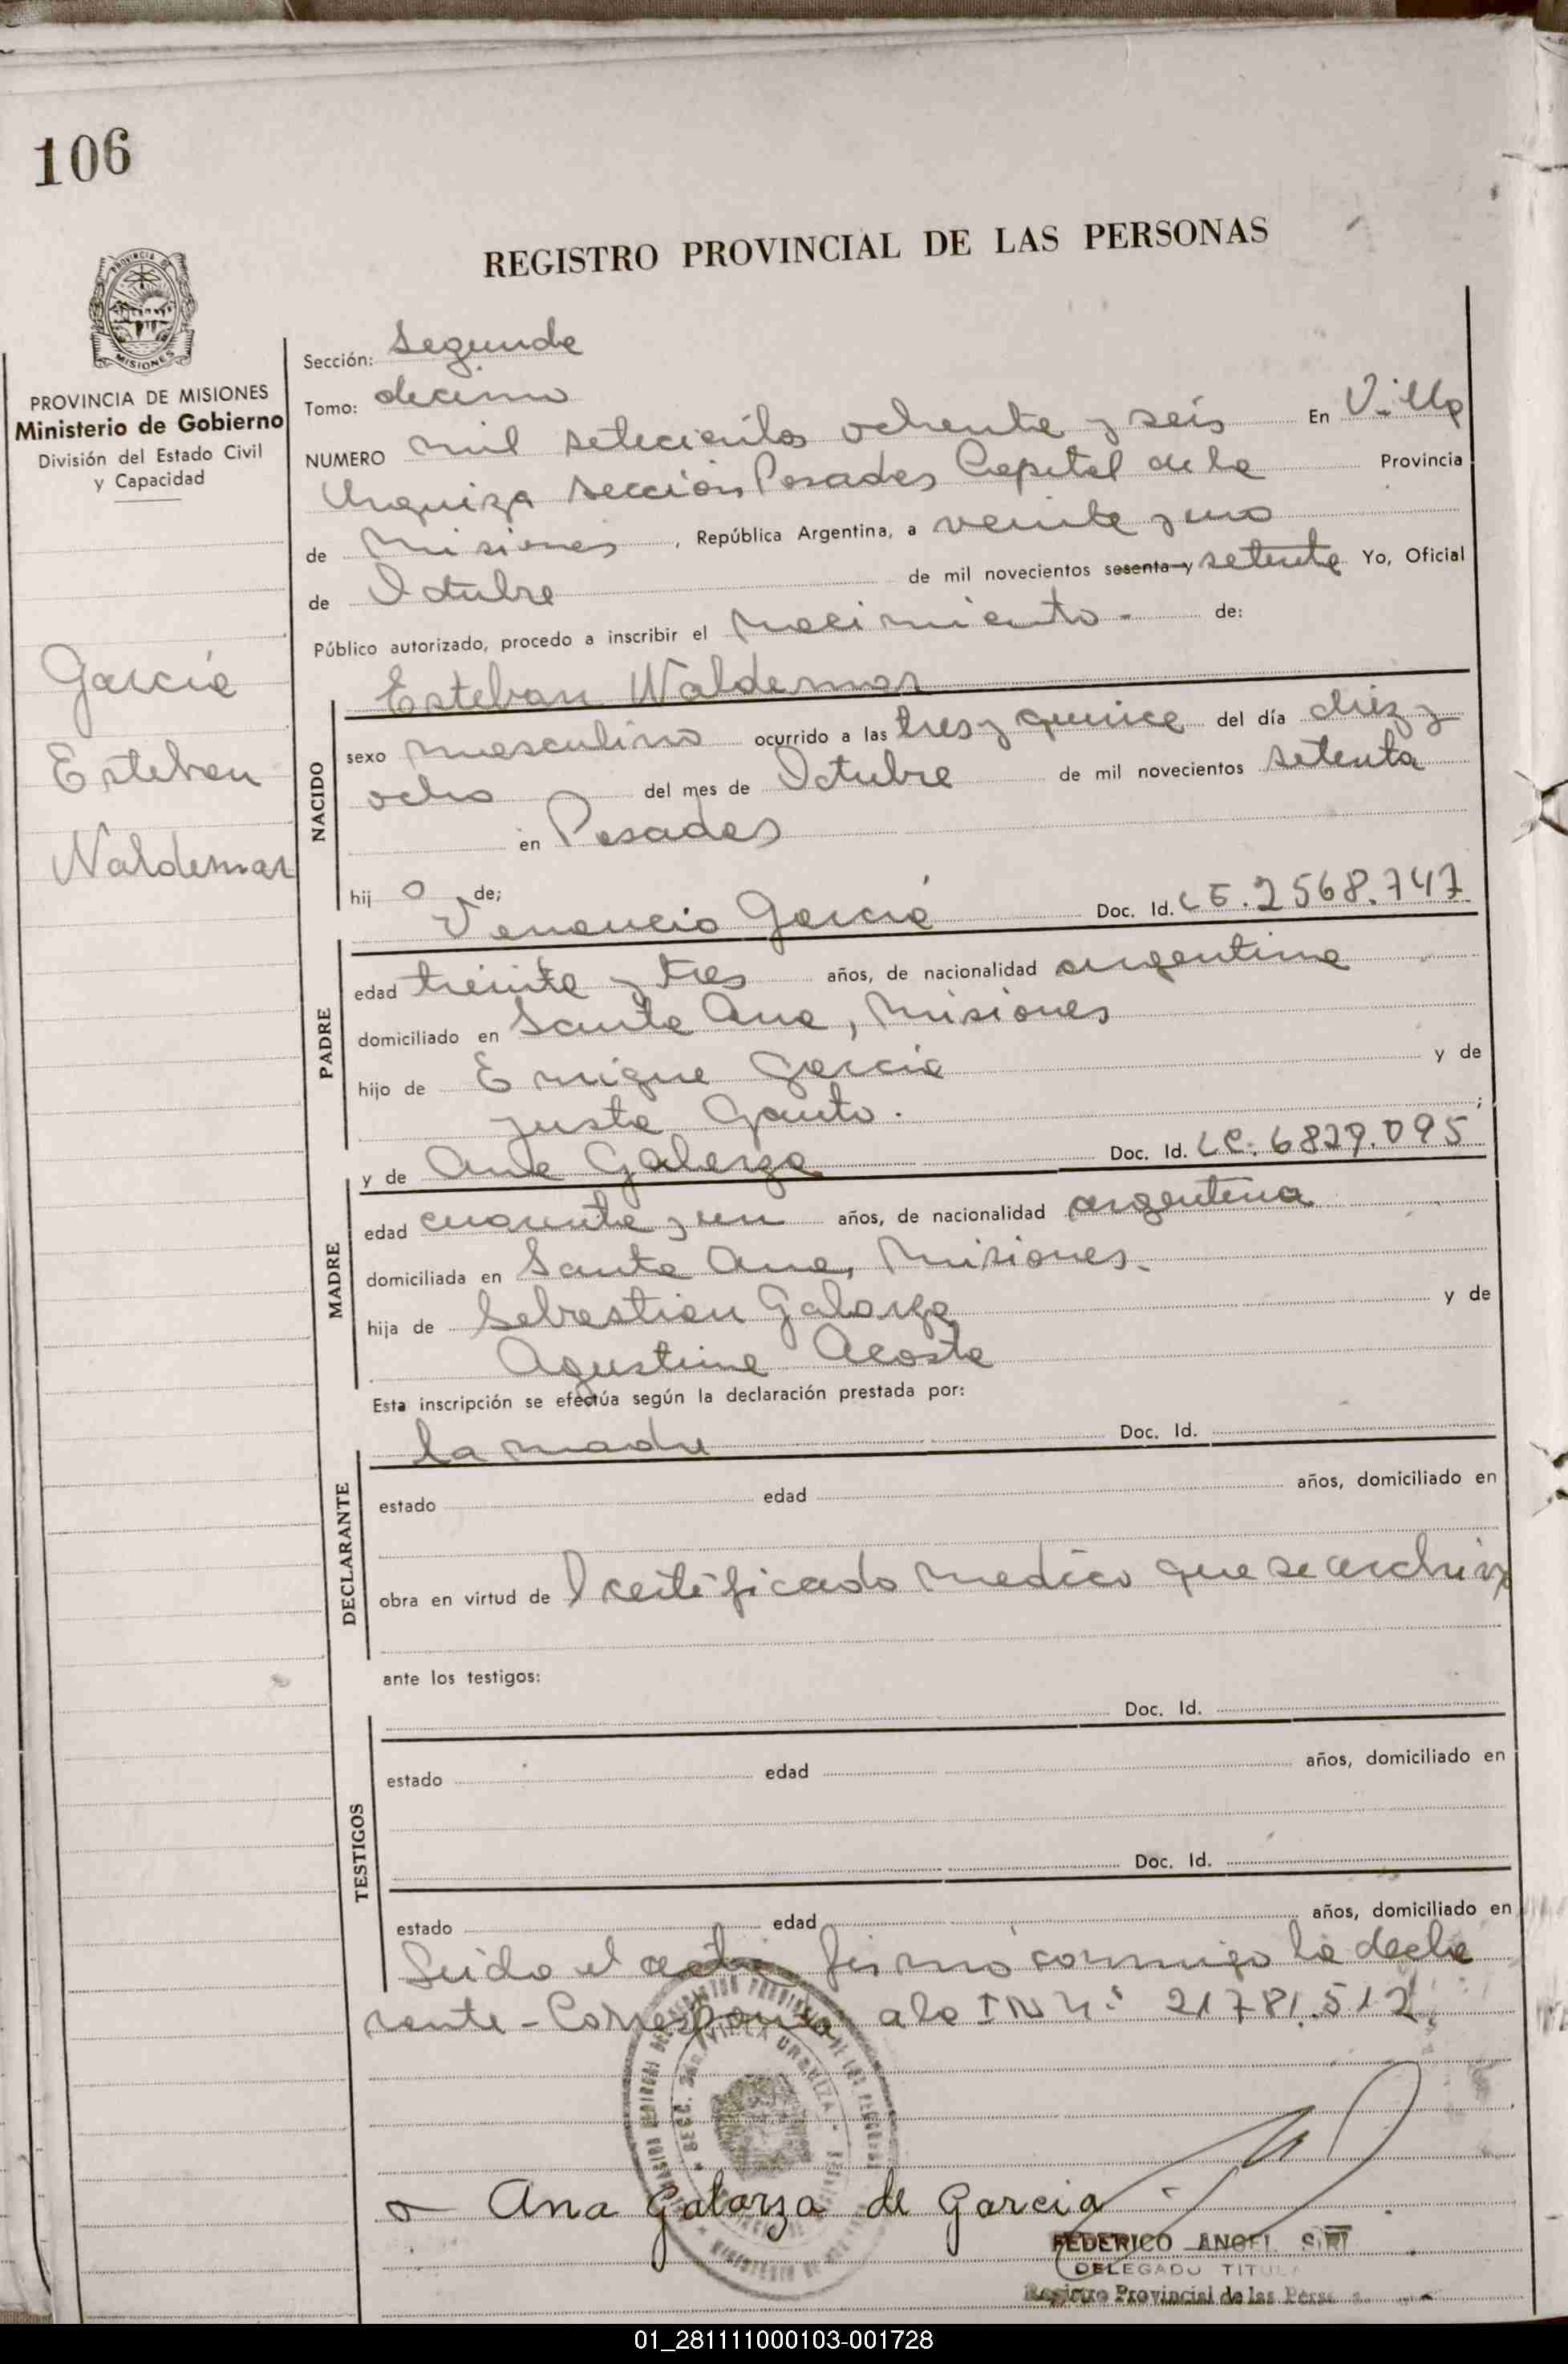 106
REGISTRO PROVINCIAL DE LAS PERSONAS
MISIONES
PROVINCIA DE MISIONES
Ministerio de Gobierno
División del Estado Civil
y Capacidad
García
Esteban
Waldemar
Sección: Segunda
Tomo: decimo
NUMERO mil setecientos ochenta y seis En Villa
Urquiza sección Posadas Capital de la Provincia
de Misiones, República Argentina, a veinte y uno
de Octubre de mil novecientos sesenta y setenta Yo, Oficial
Público autorizado, procedo a inscribir el nacimiento - de:
Esteban Waldemar
NACIDO
sexo masculino ocurrido a las tres y quince del día diez y
ocho del mes de Octubre de mil novecientos setenta
en Posadas
hij o de;
Venancio García Doc. Id. LE. 2568.747
PADRE
edad treinta y tres años, de nacionalidad argentina
domiciliado en Santa Ana, Misiones
hijo de Enrique García y de
Justa Gauto. ;
y de Ana Galarza Doc. Id. LC. 6829.095
MADRE
edad cuarenta y un años, de nacionalidad argentina
domiciliada en Santa Ana, Misiones.
hija de Sebastian Galarza y de
Agustina Acosta
Esta inscripción se efectúa según la declaración prestada por:
la madre Doc. Id.
DECLARANTE
estado edad años, domiciliado en
obra en virtud de l certificado medico que se archiva
ante los testigos:
Doc. Id.
TESTIGOS
estado edad años, domiciliado en
Doc. Id.
estado edad años, domiciliado en
Leida el acta firmó conmigo la decla
rante - Corresponde a la I N Nº 21781.512
SECC. 2da. VILLA URQUIZA
Ana Galarza de Garcia
FEDERICO ANGEL SIRI
DELEGADO TITULAR
Registro Provincial de las Pers
01_281111000103-001728